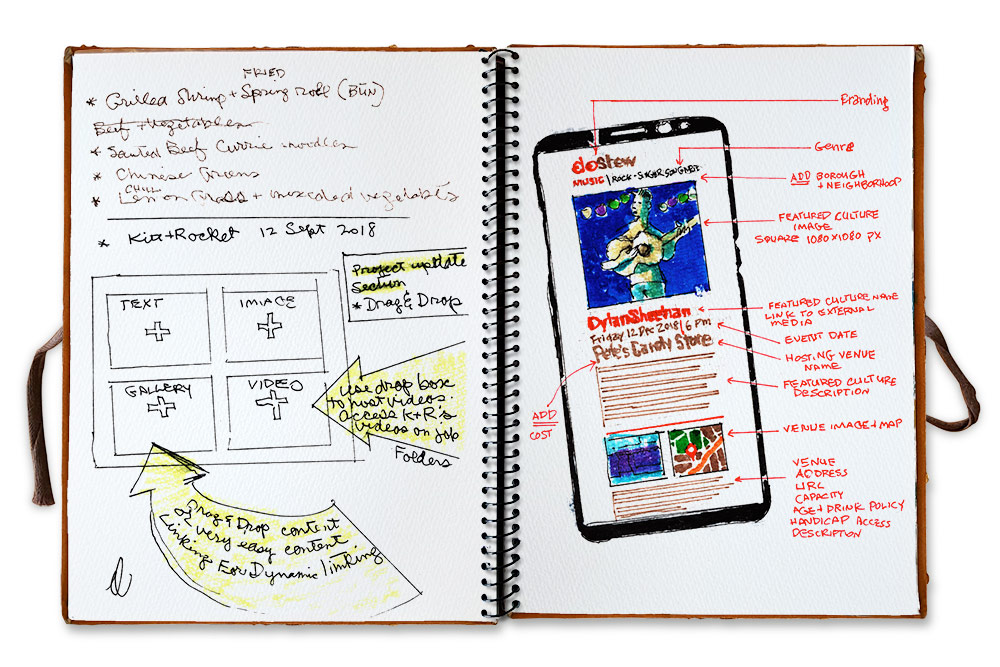 FRIED
* Grilled Shrimp + Spring Roll (BÚN)
Beef + Vegetables
* Sautéd Beef Currie + noodles
* Chinese Greens
CHILI
* Lemon Grass + mixed vegetables
* Kim+Rocket 12 Sept 2018
Project update
Section
* Drag & Drop
TEXT
IMAGE
GALLERY
VIDEO
Use drop box
to host videos.
access K+R's
videos on job
Folders
Drag & Drop content
very easy content
linking For Dynamic linking
dostew
MUSIC | ROCK - SINGER SONGWRITER
DylanSheehan
Friday 12 Dec 2018 | 6 Pm
Pete's Candy Store
Branding
Genre
ADD BOROUGH
+ NEIGHBORHOOD
FEATURED CULTURE
IMAGE
SQUARE 1080X1080 PX
FEATURED CULTURE NAME
LINK TO EXTERNAL
MEDIA
EVENT DATE
HOSTING VENUE
NAME
FEATURED CULTURE
DESCRIPTION
ADD
COST
VENUE IMAGE + MAP
VENUE
ADDRESS
URL
CAPACITY
AGE + DRINK POLICY
HANDICAP ACCESS
DESCRIPTION